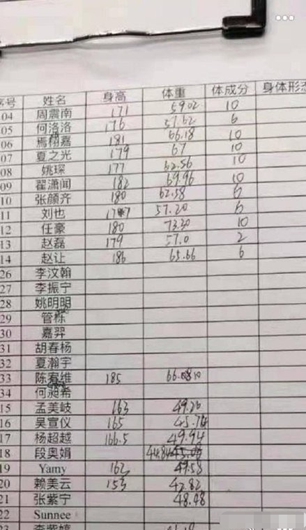 序号 姓名 身高 体重 体成分 身体形态
04 周震南 171 59.02 10
05 何洛洛 176 57.62 6
06 焉栩嘉 181 66.18 10
07 夏之光 179 67 10
08 姚琛 177 62.56 10
09 翟潇闻 182 69.96 10
10 张颜齐 180 62.58 6
11 刘也 57.20 6
12 任豪 180 73.30 10
13 赵磊 179 57.0 2
14 赵让 186 65.66 6
26 李汶翰
27 李振宁
28 姚明明
29 管栎
30 嘉羿
31 胡春杨
32 夏瀚宇
33 陈宥维 185
34 何昶希
15 孟美岐 163
16 吴宣仪 165
17 杨超越 166.5 49.94
18 段奥娟
19 Yamy 162 49.58
20 赖美云 153 42.82
21 张紫宁 48.48
22 Sunnee